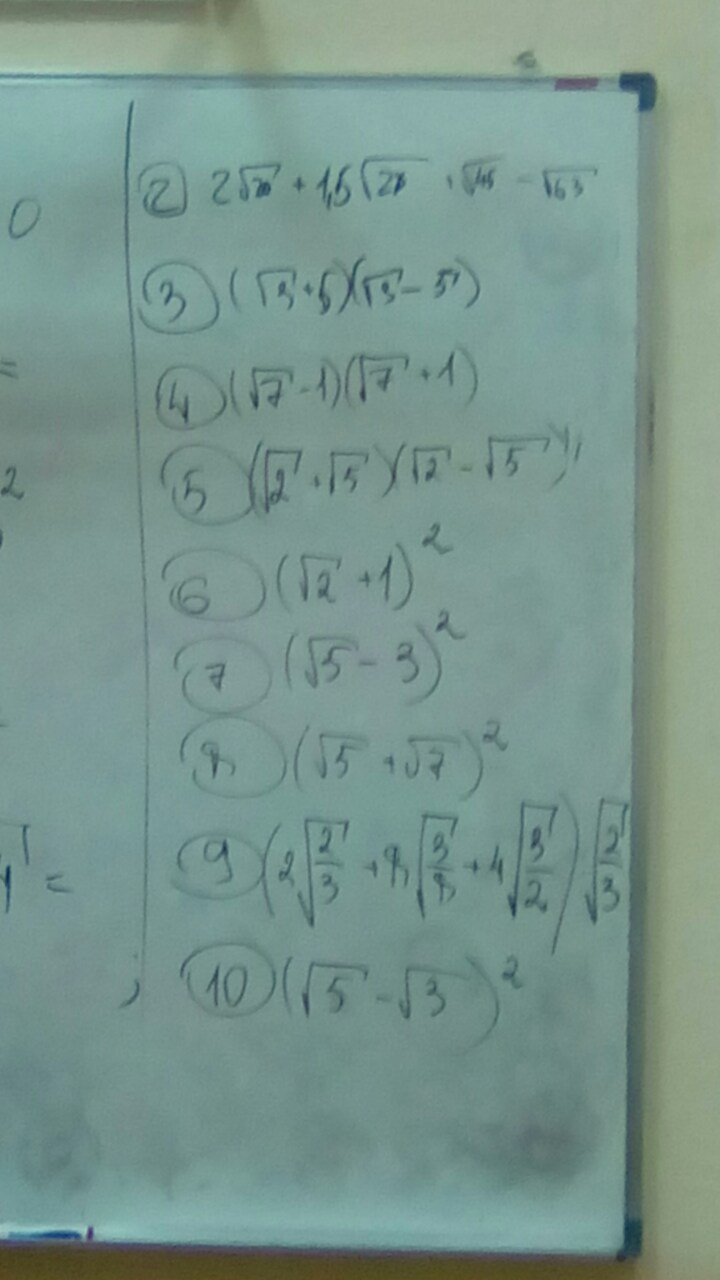 0
② 2√20 + 1,5√28 + √45 - √63
③ (√3+5)(√3-5)
=
④ (√7-1)(√7+1)
2
⑤ (√2+√5)(√2-√5)
⑥ (√2+1)²
⑦ (√5-3)²
⑧ (√5+√7)²
=
⑨ (2√2/3 + 8√3/8 + 4√3/2) √2/3
⑩ (√5-√3)²